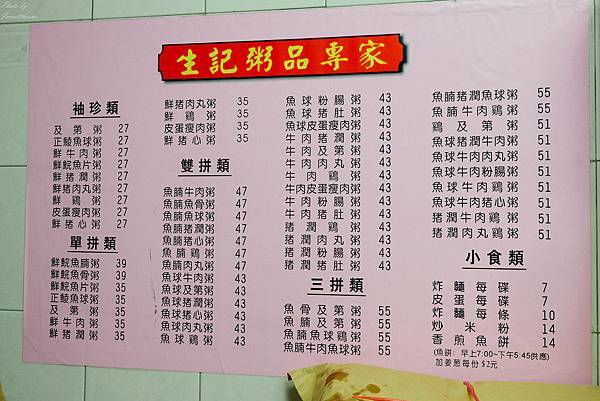 生記粥品專家
袖珍類
及第粥 27
正鯪魚球粥 27
鮮牛肉粥 27
鮮鯇魚片粥 27
鮮豬潤粥 27
鮮猪肉丸粥 27
鮮鷄粥 27
皮蛋瘦肉粥 27
鮮豬心粥 27
單拼類
鮮鯇魚腩粥 39
鮮鯇魚骨粥 39
鮮鯇魚片粥 35
正鯪魚球粥 35
及第粥 35
鮮牛肉粥 35
鮮豬潤粥 35
鮮猪肉丸粥 35
鮮鷄粥 35
皮蛋瘦肉粥 35
鮮豬心粥 35
雙拼類
魚腩牛肉粥 47
魚腩魚骨粥 47
魚腩魚球粥 47
魚腩豬潤粥 47
魚腩豬心粥 47
魚腩鷄粥 47
魚腩肉丸粥 47
魚球牛肉粥 43
魚球及第粥 43
魚球豬潤粥 43
魚球豬心粥 43
魚球肉丸粥 43
魚球鷄粥 43
魚球粉腸粥 43
魚球豬肚粥 43
魚球皮蛋瘦肉粥 43
牛肉豬潤粥 43
牛肉及第粥 43
牛肉肉丸粥 43
牛肉鷄粥 43
牛肉皮蛋瘦肉粥 43
牛肉粉腸粥 43
牛肉豬肚粥 43
豬潤鷄粥 43
豬潤肉丸粥 43
豬潤粉腸粥 43
豬潤豬肚粥 43
三拼類
魚骨及第粥 55
魚腩及第粥 55
魚腩魚球鷄粥 55
魚腩牛肉魚球粥 55
魚腩豬潤魚球粥 55
魚腩牛肉鷄粥 55
鷄及第粥 51
魚球豬潤牛肉粥 51
魚球牛肉肉丸粥 51
魚球牛肉粉腸粥 51
魚球牛肉鷄粥 51
魚球牛肉豬心粥 51
豬潤牛肉鷄粥 51
豬潤牛肉肉丸粥 51
小食類
炸麵每碟 7
皮蛋每碟 7
炸麵每條 10
炒米粉 14
香煎魚餅 14
(魚餅: 早上7:00~下午5:45供應)
加姜葱每份 $2元